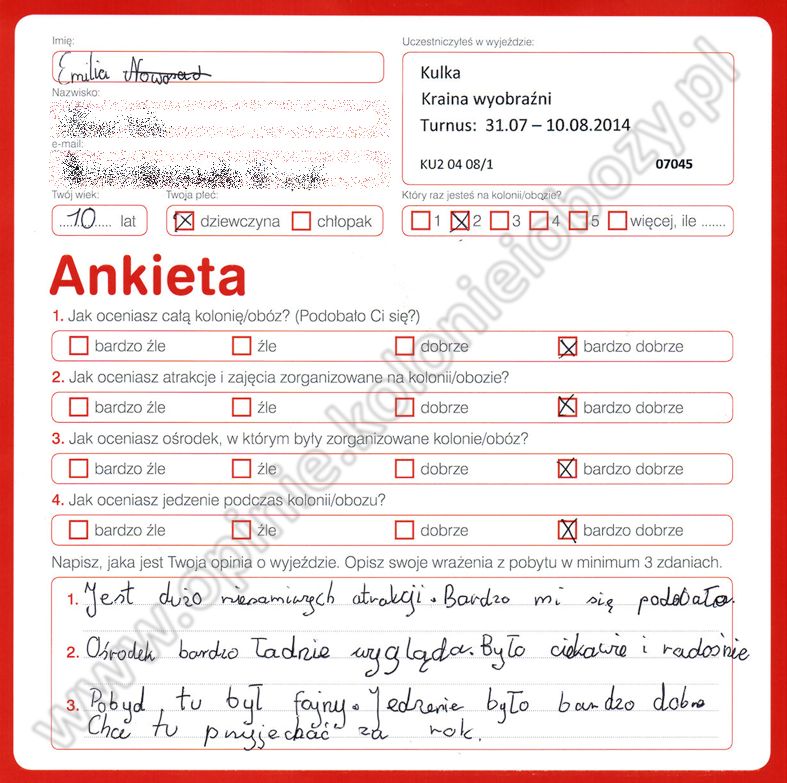 Imię:
Emilia
Nazwisko:
e-mail:
Twój wiek:
10 lat
Twoja płeć:
dziewczyna chłopak
Uczestniczyłeś w wyjeździe:
Kulka
Kraina wyobraźni
Turnus: 31.07 – 10.08.2014
KU2 04 08/1 07045
Który raz jesteś na kolonii/obozie?
1 2 3 4 5 więcej, ile .......
Ankieta
1. Jak oceniasz całą kolonię/obóz? (Podobało Ci się?)
bardzo źle źle dobrze bardzo dobrze
2. Jak oceniasz atrakcje i zajęcia zorganizowane na kolonii/obozie?
bardzo źle źle dobrze bardzo dobrze
3. Jak oceniasz ośrodek, w którym były zorganizowane kolonie/obóz?
bardzo źle źle dobrze bardzo dobrze
4. Jak oceniasz jedzenie podczas kolonii/obozu?
bardzo źle źle dobrze bardzo dobrze
Napisz, jaka jest Twoja opinia o wyjeździe. Opisz swoje wrażenia z pobytu w minimum 3 zdaniach.
1. Jest dużo niesamiwych atrakcji. Bardzo mi się podobało.
2. Ośrodek bardzo ładnie wygląda. Było ciekawie i radośnie
3. Pobyd tu był fajny. Jedzenie było bardzo dobre
Chce tu przyjechać za rok.
www.opinie.kolonieiobozy.pl